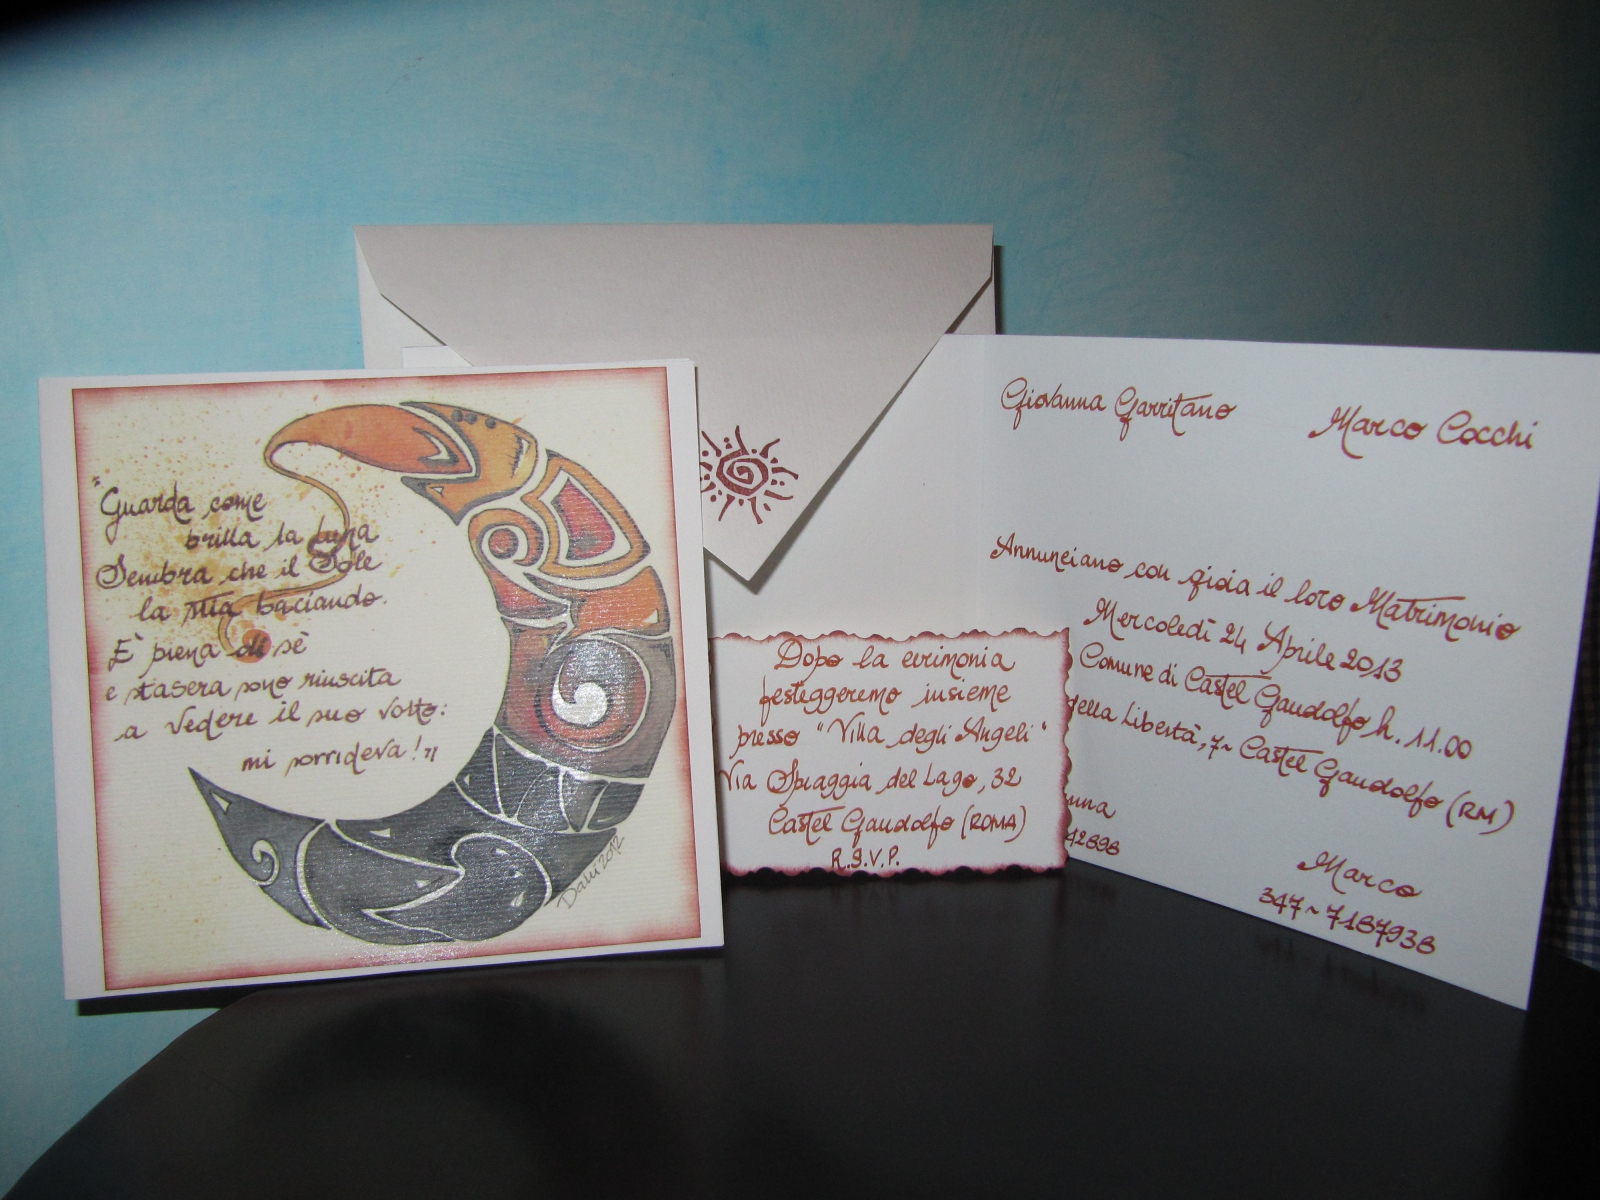 "Guarda come
brilla la luna
Sembra che il Sole
la stia baciando.
È piena di sè
e stasera sono riuscita
a vedere il suo volto:
mi sorrideva!"
Dalu 2012
Giovanna Garritano
Marco Cocchi
Annunciano con gioia il loro Matrimonio
Mercoledì 24 Aprile 2013
Comune di Castel Gandolfo h. 11.00
della Libertà, 7~ Castel Gandolfo (RM)
Marco
347~7187938
42898
Dopo la cerimonia
festeggeremo insieme
presso "Villa degli Angeli"
Via Spiaggia del Lago, 32
Castel Gandolfo (ROMA)
R.S.V.P.